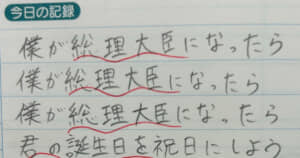 今日の記録
僕が総理大臣になったら
僕が総理大臣になったら
僕が総理大臣になったら
君の誕生日を祝日にしよう